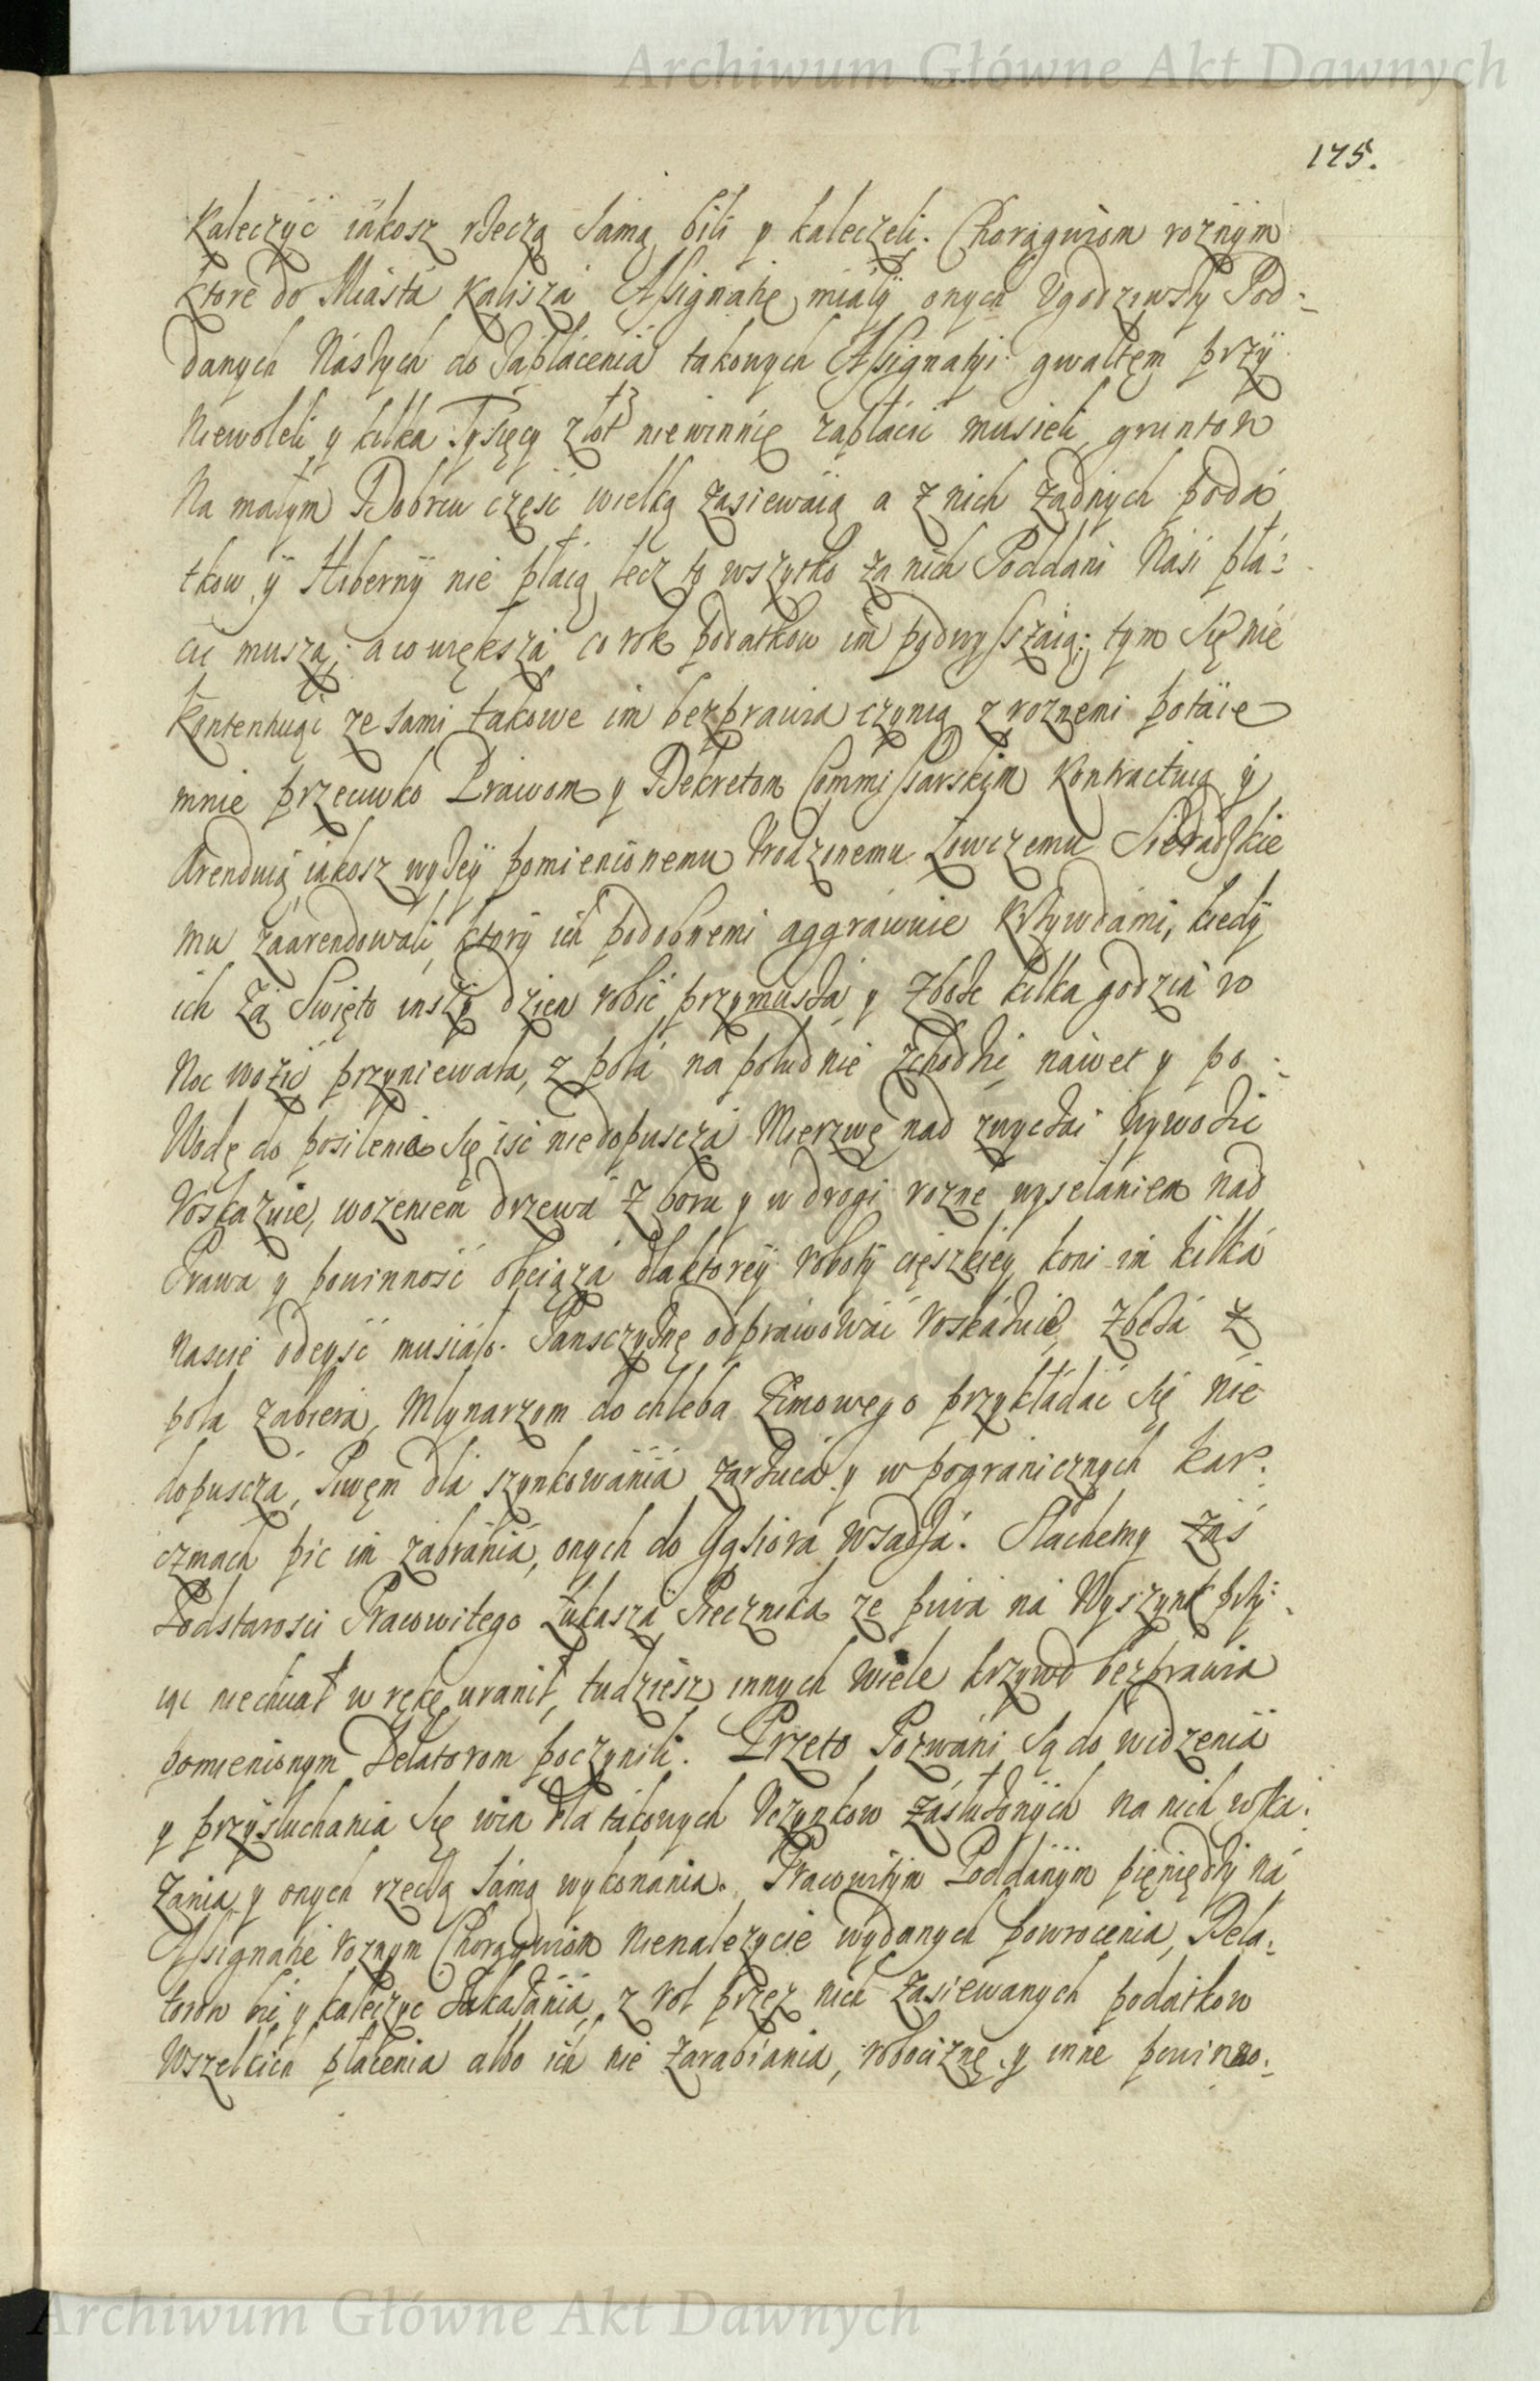 Archiwum Główne Akt Dawnych
175.
Kaleczyć iakosz rzeczą samą bili y kaleczeli. Chorągwiom roznym
Ktore do Miasta Kalisza Assignatię miały onych Ugodziwszy Pod-
danych Naszych do zapłacenia takowych Assignatyi gwałtem przy
Niewoleli y kilka Tysięcy złot niewinnie zapłacić musieli, gruntow
Na małym Dobrcu część wielką zasiewaią a z nich żadnych poda
tkow y Hiberny nie płacą, lecz to wszytko za nich Poddani Nasi pła-
cić muszą, a co większa co rok podatkow im podwyszszaią; tym się nie
Kontentuąc ze sami takowe im bezprawia czynią z roznemi potaie
mnie przeciwko Prawom y Dekretom Commissarskim Kontractuią y
Arenduią iakosz wyżey pomienionemu Urodzonemu Łowczemu Sieradzkie
mu zaarendowali, ktory ich podobnemi aggrawuie Krzywdami, kiedy
ich za Swięto inszy dzien robić przymusza y zboże kilka godzin w
Noc wozić przyniewala, z pola na południe zchodzić, nawet y po-
Wodę do posilenia się iść niedopuscza Mierzwę nad zwyczai wywozić
Roskazuie, wozeniem drzewa z boru y w drogi rozne wysełaniem nad
Prawa y powinność obciąza dla ktorey roboty cięszkiey koni im kilka
nascie odeyść musiało. Pansczyznę odprawować Roskazuie, zboża z
pola zabiera, Mlynarzom do chleba Zimowego przykładać się nie
dopuscza, Piwem dla szynkowania zarzuca y w pogranicznych kar-
czmach pic im zabrania, onych do Gąsiora wsadza. Slachetny zaś
Podstarosci Pracowitego Łukasza Piecznika ze piwa na Wyszynk przy-
iąc niechciał w rękę uranił, tudziesz innych wiele krzywd bezprawia
pomienionym Delatorom poczynili. Przeto Pozwani są do widzenia
y przysłuchania się win dla takowych Uczynkow zasłużonych na nich wska-
zania y onych rzeczą samą wykonania. Pracowitym Poddanym pieniędzy na
Assignatie roznym Chorągwiom nienalezycie wydanych powrocenia, Dela-
torow bić y kaleczyc zakazania, z rol przez nich zasiewanych podatkow
Wszelkich płacenia albo ich nie zarabiania, robociznę y inne powinno-
Archiwum Główne Akt Dawnych